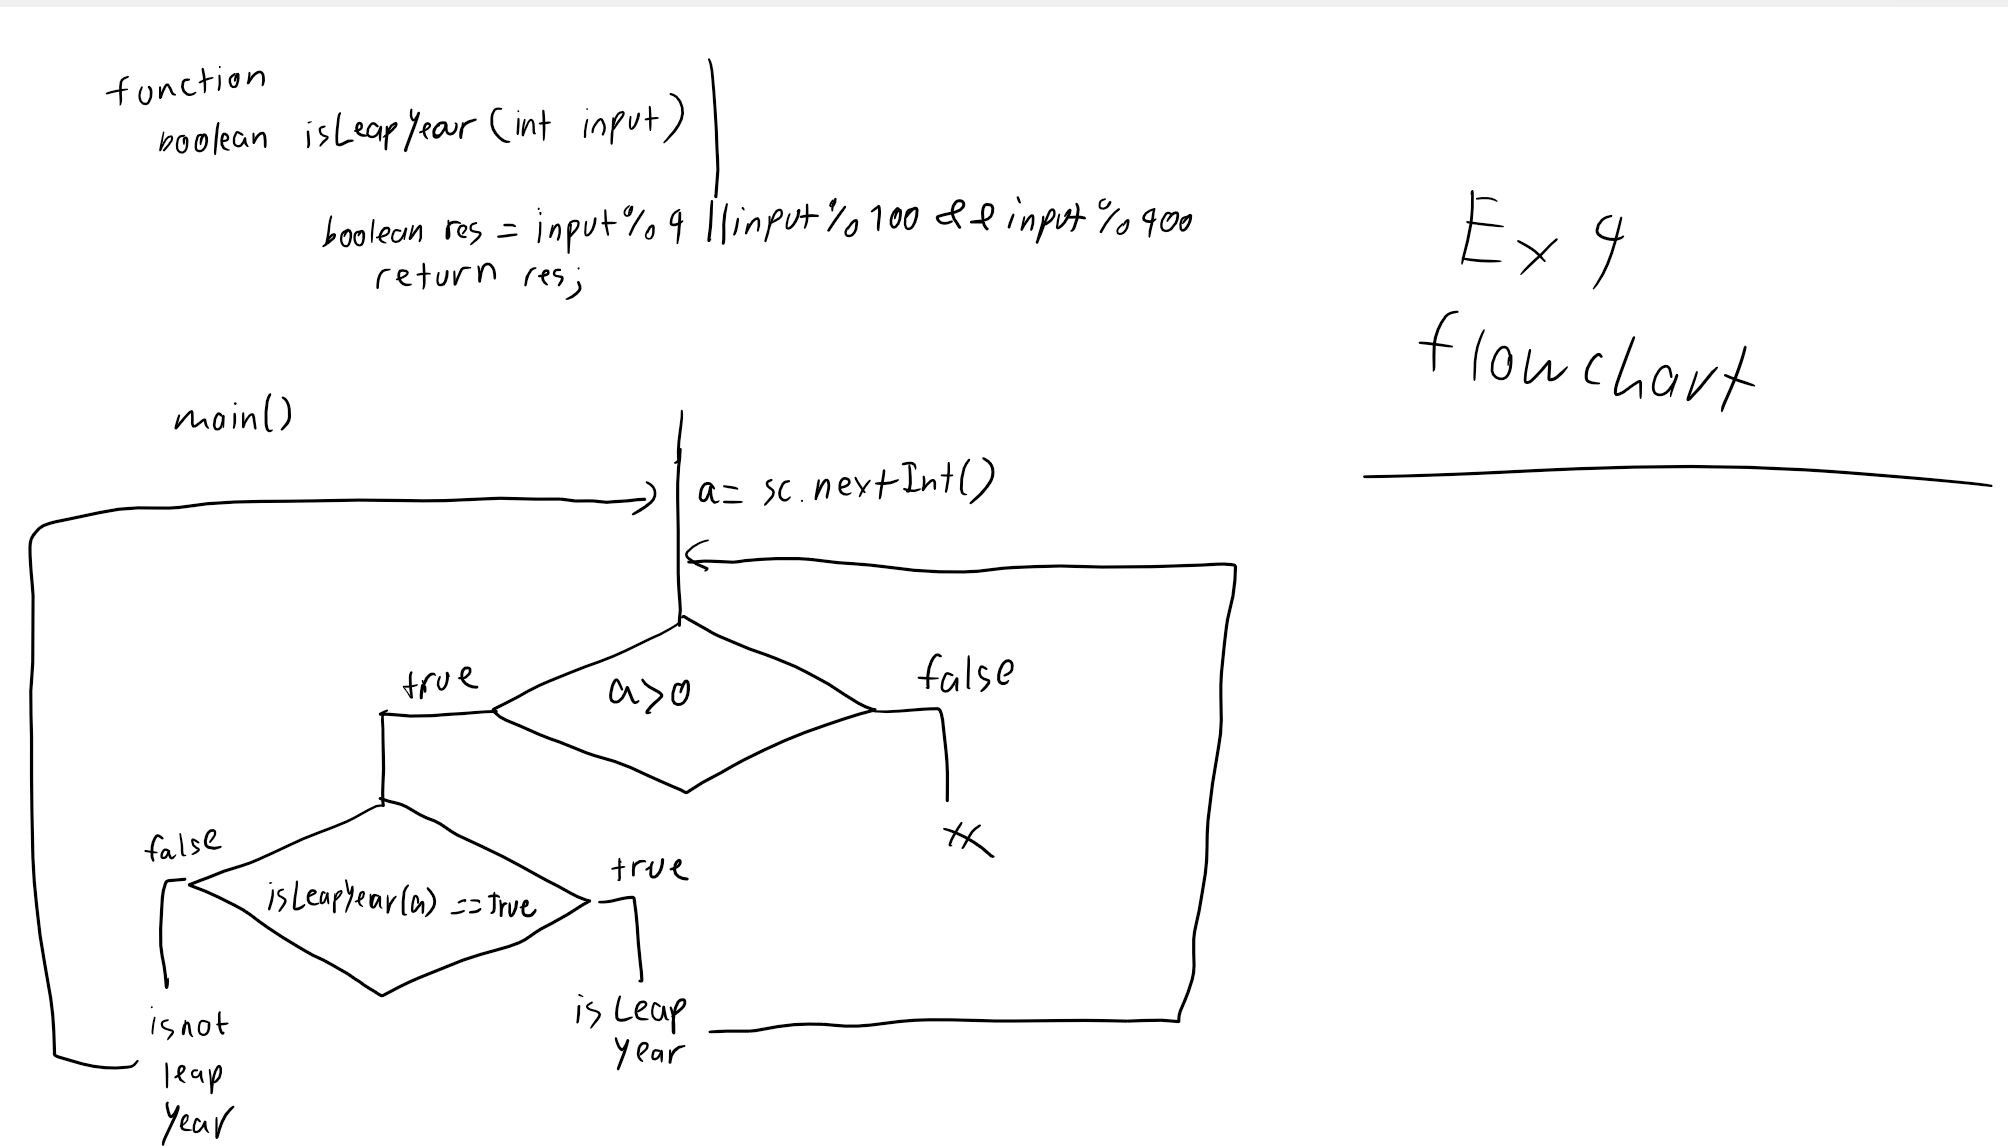 function
boolean isLeapYear (int input)
boolean res = input % 4 || input % 100 && input % 400
return res;
Ex 4
flowchart
main()
a = sc.nextInt()
true
a>0
false
false
isLeapYear(a) == true
true
is not
leap
year
is Leap
year